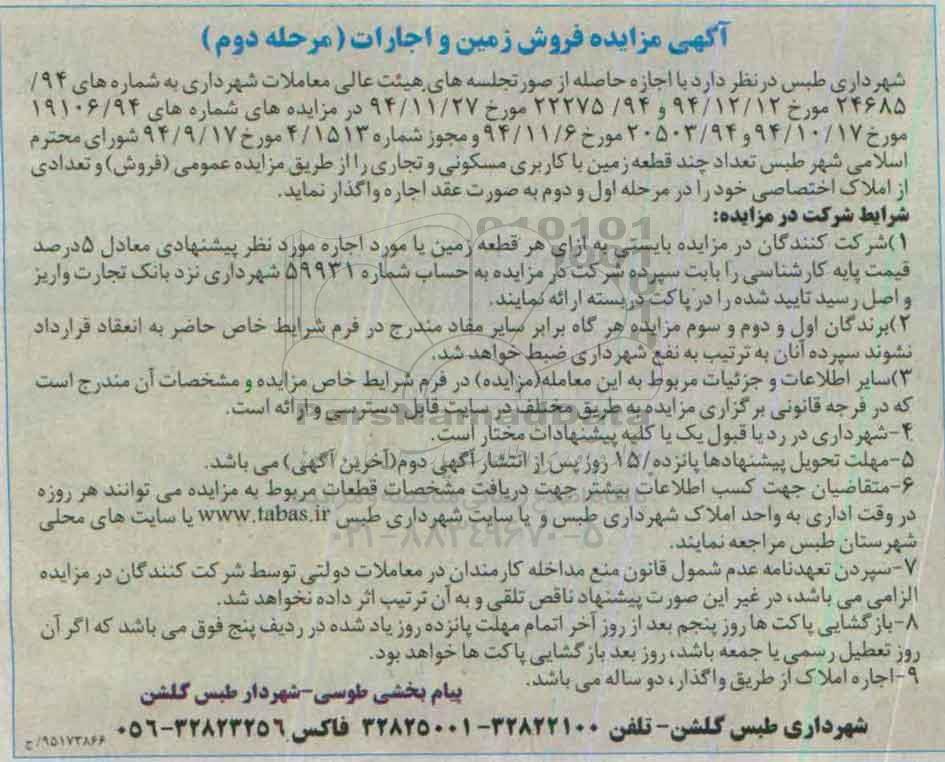 آگهی مزایده فروش زمین و اجارات (مرحله دوم)
شهرداری طبس درنظر دارد با اجازه حاصله از صورتجلسه های هیئت عالی معاملات شهرداری به شماره های ۹۴/
۲۴۶۸۵ مورخ ۹۴/۱۲/۱۲ و ۹۴/ ۲۲۲۷۵ مورخ ۹۴/۱۱/۲۷ در مزایده های شماره های ۱۹۱۰۶/۹۴
مورخ ۹۴/۱۰/۱۷ و ۲۰۵۰۳/۹۴ مورخ ۹۴/۱۱/۶ و مجوز شماره ۴/۱۵۱۳ مورخ ۹۴/۹/۱۷ شورای محترم
اسلامی شهر طبس تعداد چند قطعه زمین با کاربری مسکونی و تجاری را از طریق مزایده عمومی (فروش) و تعدادی
از املاک اختصاصی خود را در مرحله اول و دوم به صورت عقد اجاره واگذار نماید.
شرایط شرکت در مزایده:
۱)شرکت کنندگان در مزایده بایستی به ازای هر قطعه زمین یا مورد اجاره مورد نظر پیشنهادی معادل ۵درصد
قیمت پایه کارشناسی را بابت سپرده شرکت در مزایده به حساب شماره ۵۹۹۳۱ شهرداری نزد بانک تجارت واریز
و اصل رسید تایید شده را در پاکت دربسته ارائه نمایند.
۲)برندگان اول و دوم و سوم مزایده هر گاه برابر سایر مفاد مندرج در فرم شرایط خاص حاضر به انعقاد قرارداد
نشوند سپرده آنان به ترتیب به نفع شهرداری ضبط خواهد شد.
۳)سایر اطلاعات و جزئیات مربوط به این معامله(مزایده) در فرم شرایط خاص مزایده و مشخصات آن مندرج است
که در فرجه قانونی برگزاری مزایده به طریق مختلف در سایت قابل دسترسی و ارائه است.
۴-شهرداری در رد یا قبول یک یا کلیه پیشنهادات مختار است.
۵-مهلت تحویل پیشنهادها پانزده/۱۵ روز پس از انتشار آگهی دوم(آخرین آگهی) می باشد.
۶-متقاضیان جهت کسب اطلاعات بیشتر جهت دریافت مشخصات قطعات مربوط به مزایده می توانند هر روزه
در وقت اداری به واحد املاک شهرداری طبس و یا سایت شهرداری طبس www.tabas.ir یا سایت های محلی
شهرستان طبس مراجعه نمایند.
۷-سپردن تعهدنامه عدم شمول قانون منع مداخله کارمندان در معاملات دولتی توسط شرکت کنندگان در مزایده
الزامی می باشد، در غیر این صورت پیشنهاد ناقص تلقی و به آن ترتیب اثر داده نخواهد شد.
۸-بازگشایی پاکت ها روز پنجم بعد از روز آخر اتمام مهلت پانزده روز یاد شده در ردیف پنج فوق می باشد که اگر آن
روز تعطیل رسمی یا جمعه باشد، روز بعد بازگشایی پاکت ها خواهد بود.
۹-اجاره املاک از طریق واگذار، دو ساله می باشد.
پیام بخشی طوسی-شهردار طبس گلشن
شهرداری طبس گلشن- تلفن ۳۲۸۲۲۱۰۰-۳۲۸۲۵۰۰۱ فاکس ۳۲۸۲۳۲۵۶-۰۵۶
۹۵۱۷۳۸۶۶/ج
ParsNamadData
۰۲۱-۸۸۳۴۹۶۷۰-۵